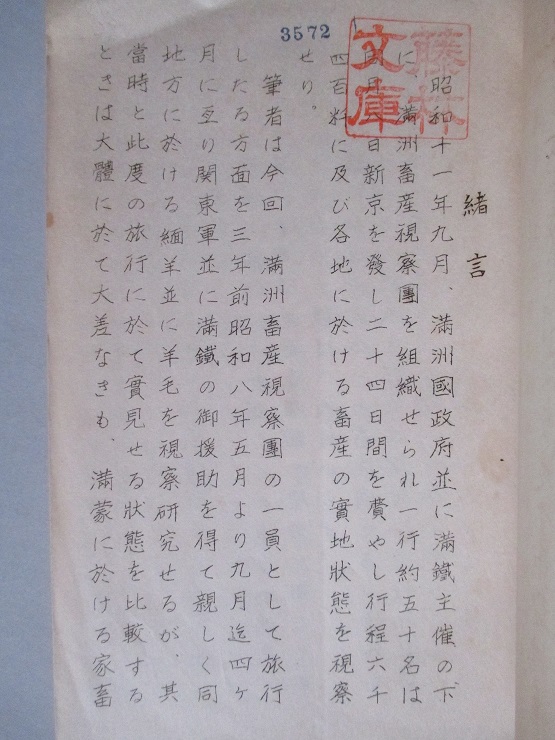 3572
文庫
緒言
昭和十一年九月、滿洲國政府並に滿鐵主催の下
に滿洲畜産視察團を組織せられ一行約五十名は
月日新京を發し二十四日間を費やし行程六千
四百粁に及び各地に於ける畜産の實地狀態を視察
せり。
筆者は今回、滿洲畜産視察團の一員として旅行
したる方面を三年前昭和八年五月より九月迄四ヶ
月に亙り関東軍並に滿鐵の御援助を得て親しく同
地方に於ける緬羊並に羊毛を視察研究せるが、其
當時と此度の旅行に於て實見せる狀態を比較する
ときは大體に於て大差なきも、滿蒙に於ける家畜